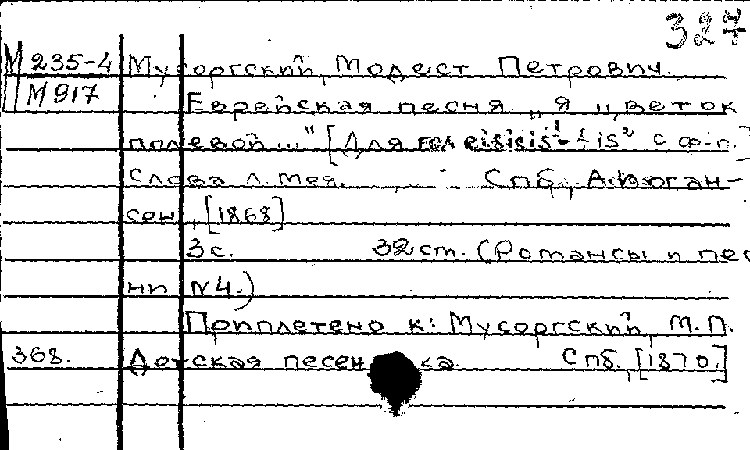 327
М 235-4 Мусоргский, Модест Петрович.
М 917 Еврейская песня „Я цветок
полевой..." [Для гол. eisis¹-fis² с ф-п.]
Слова Л. Мея. Спб., А. Иоган-
сен, [1868]
3 с. 32 cm. (Романсы и пес
ни №4.)
Приплетено к: Мусоргский, М.П.
368. Детская песенка. Спб., [1870.]